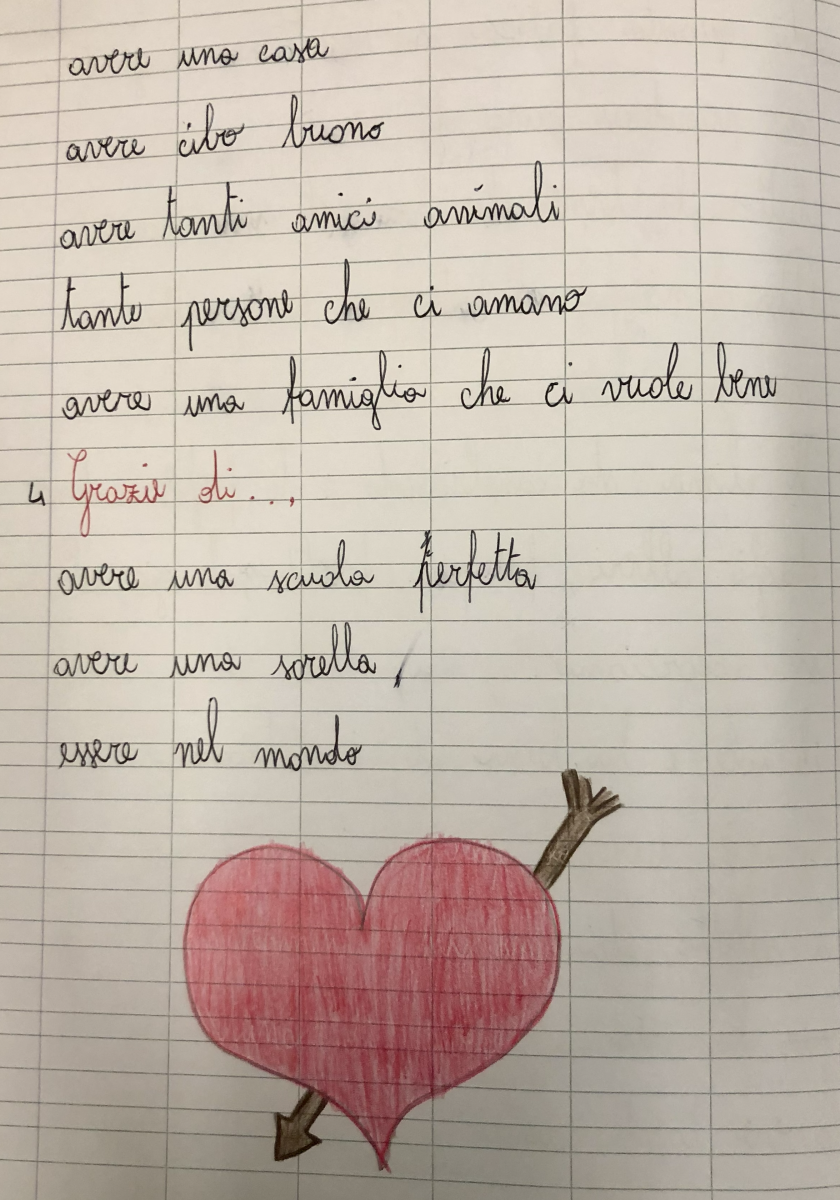 avere una casa
avere cibo buono
avere tanti amici animali
tante persone che ci amano
avere una famiglia che ci vuole bene
4 Grazie di...,
avere una scuola perfetta
avere una sorella,
essere nel mondo